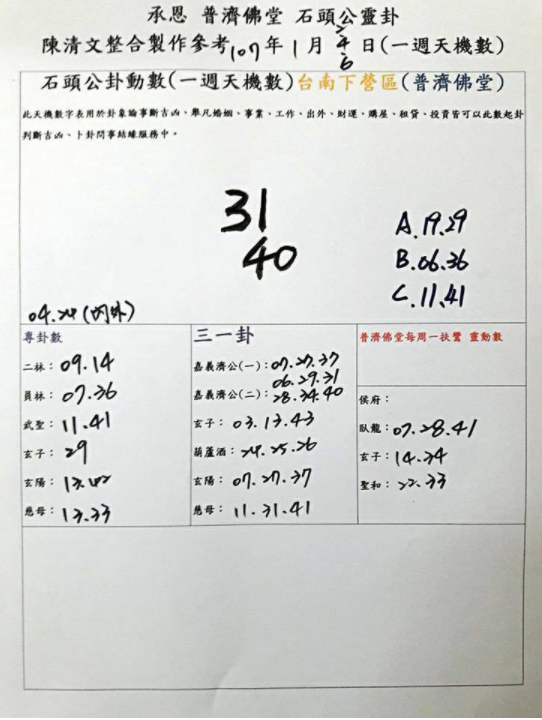 承恩 普濟佛堂 石頭公靈卦
陳清文整合製作參考107年1月2/4/6日(一週天機數)
石頭公卦動數(一週天機數)台南下營區(普濟佛堂)
此天機數字表用於卦象論事斷吉凶、舉凡婚姻、事業、工作、出外、財運、購屋、租貸、投資皆可以此數起卦
判斷吉凶、卜卦問事結緣服務中。
31
40
A.19.29
B.06.36
C.11.41
04.24(內外)
粵卦數
二林：09.14
員林：07.36
武聖：11.41
玄子：29
玄陽：12.42
慈母：13.33
三一卦
嘉義濟公(一)：07.27.37
06.29.31
嘉義濟公(二)：28.34.40
玄子：03.13.43
葫蘆酒：24.25.26
玄陽：07.27.37
慈母：11.31.41
普濟佛堂每周一扶鸞 靈動數
侯府：
臥龍：07.28.41
玄子：14.34
聖和：22.33